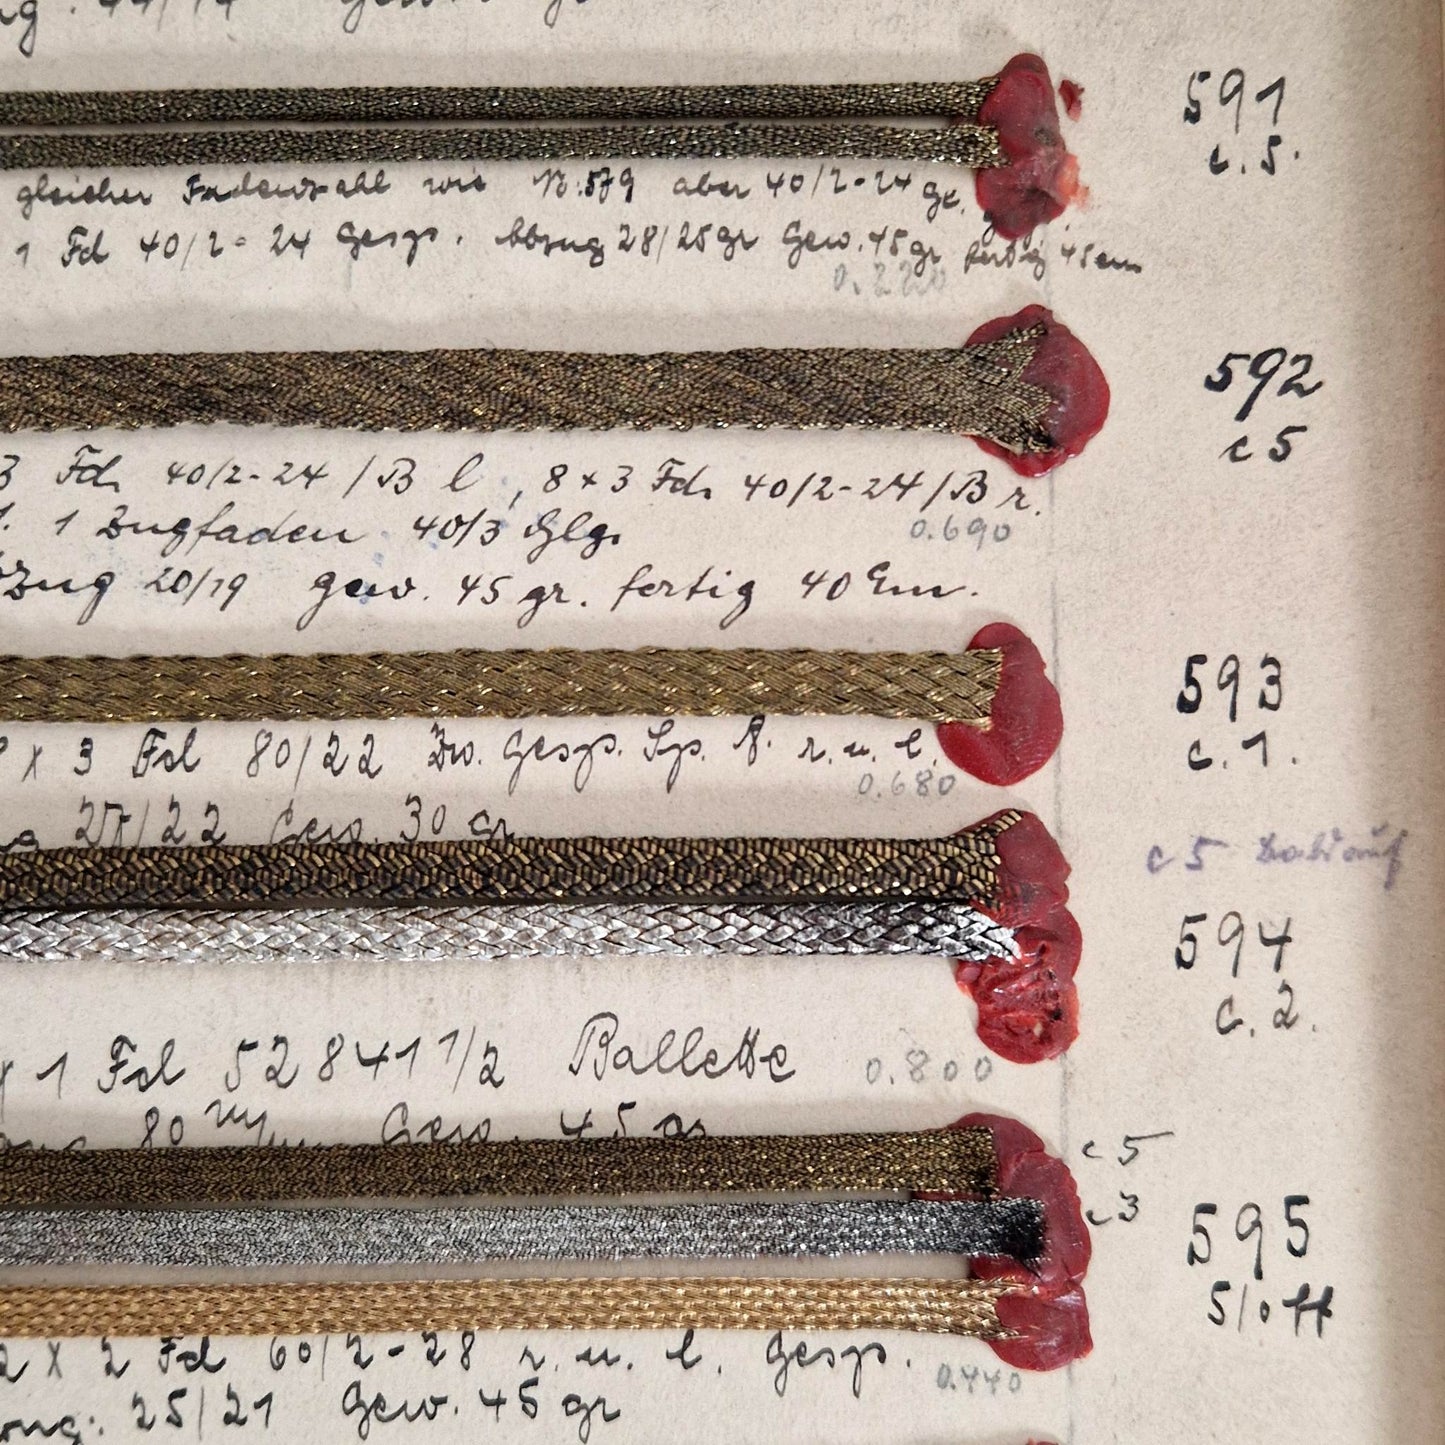 591
c. 5.
gleicher Fadenzahl wie N: 579 aber 40/2-24 ge.
1 Fd 40/2-24 Gesp. Abzug 28/25gr Gew. 45 gr fertig 45 cm
0.220
592
c 5
3 Fd. 40/2-24 / B l, 8 x 3 Fd. 40/2-24 / B r.
1 Zugfaden 40/3 Glg.
0.690
zug 20/19 gew. 45 gr. fertig 40 cm.
593
c. 1.
x 3 Fd 80/22 Zw. Gesp. Sp. 8. r. u. l.
0.680
22 Gew. 30 gr
c 5
594
c. 2.
x 1 Fd 52 841 1/2 Ballette
0.800
80 Gew. 45 gr
c 5
c 3
595
2 x 2 Fd 60/2-28 r. u. l. Gesp.
0.440
zug: 25/21 Gew. 45 gr